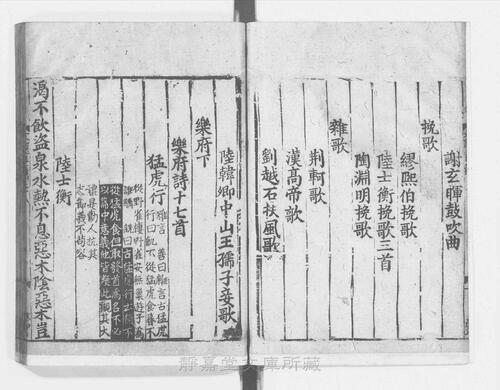 謝玄暉鼓吹曲
挽歌
繆熙伯挽歌
陸士衡挽歌三首
陶淵明挽歌
雜歌
荆軻歌
漢高帝歌
劉越石扶風歌
陸韓卿中山王孺子妾歌
樂府下
樂府詩十七首
猛虎行
陸士衡
渴不飲盗泉水熱不息惡木陰惡木豈
静嘉堂文庫所蔵